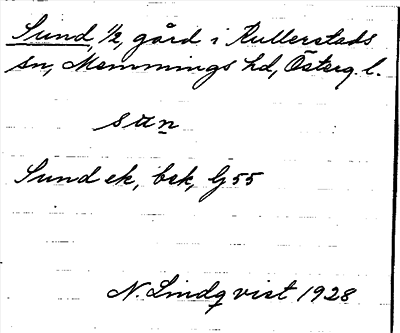 Sund, 1/2, gård i Kullerstads
sn, Memmings hd, Österg. l.
Sund ek, bek, G 55
N. Lindqvist 1928